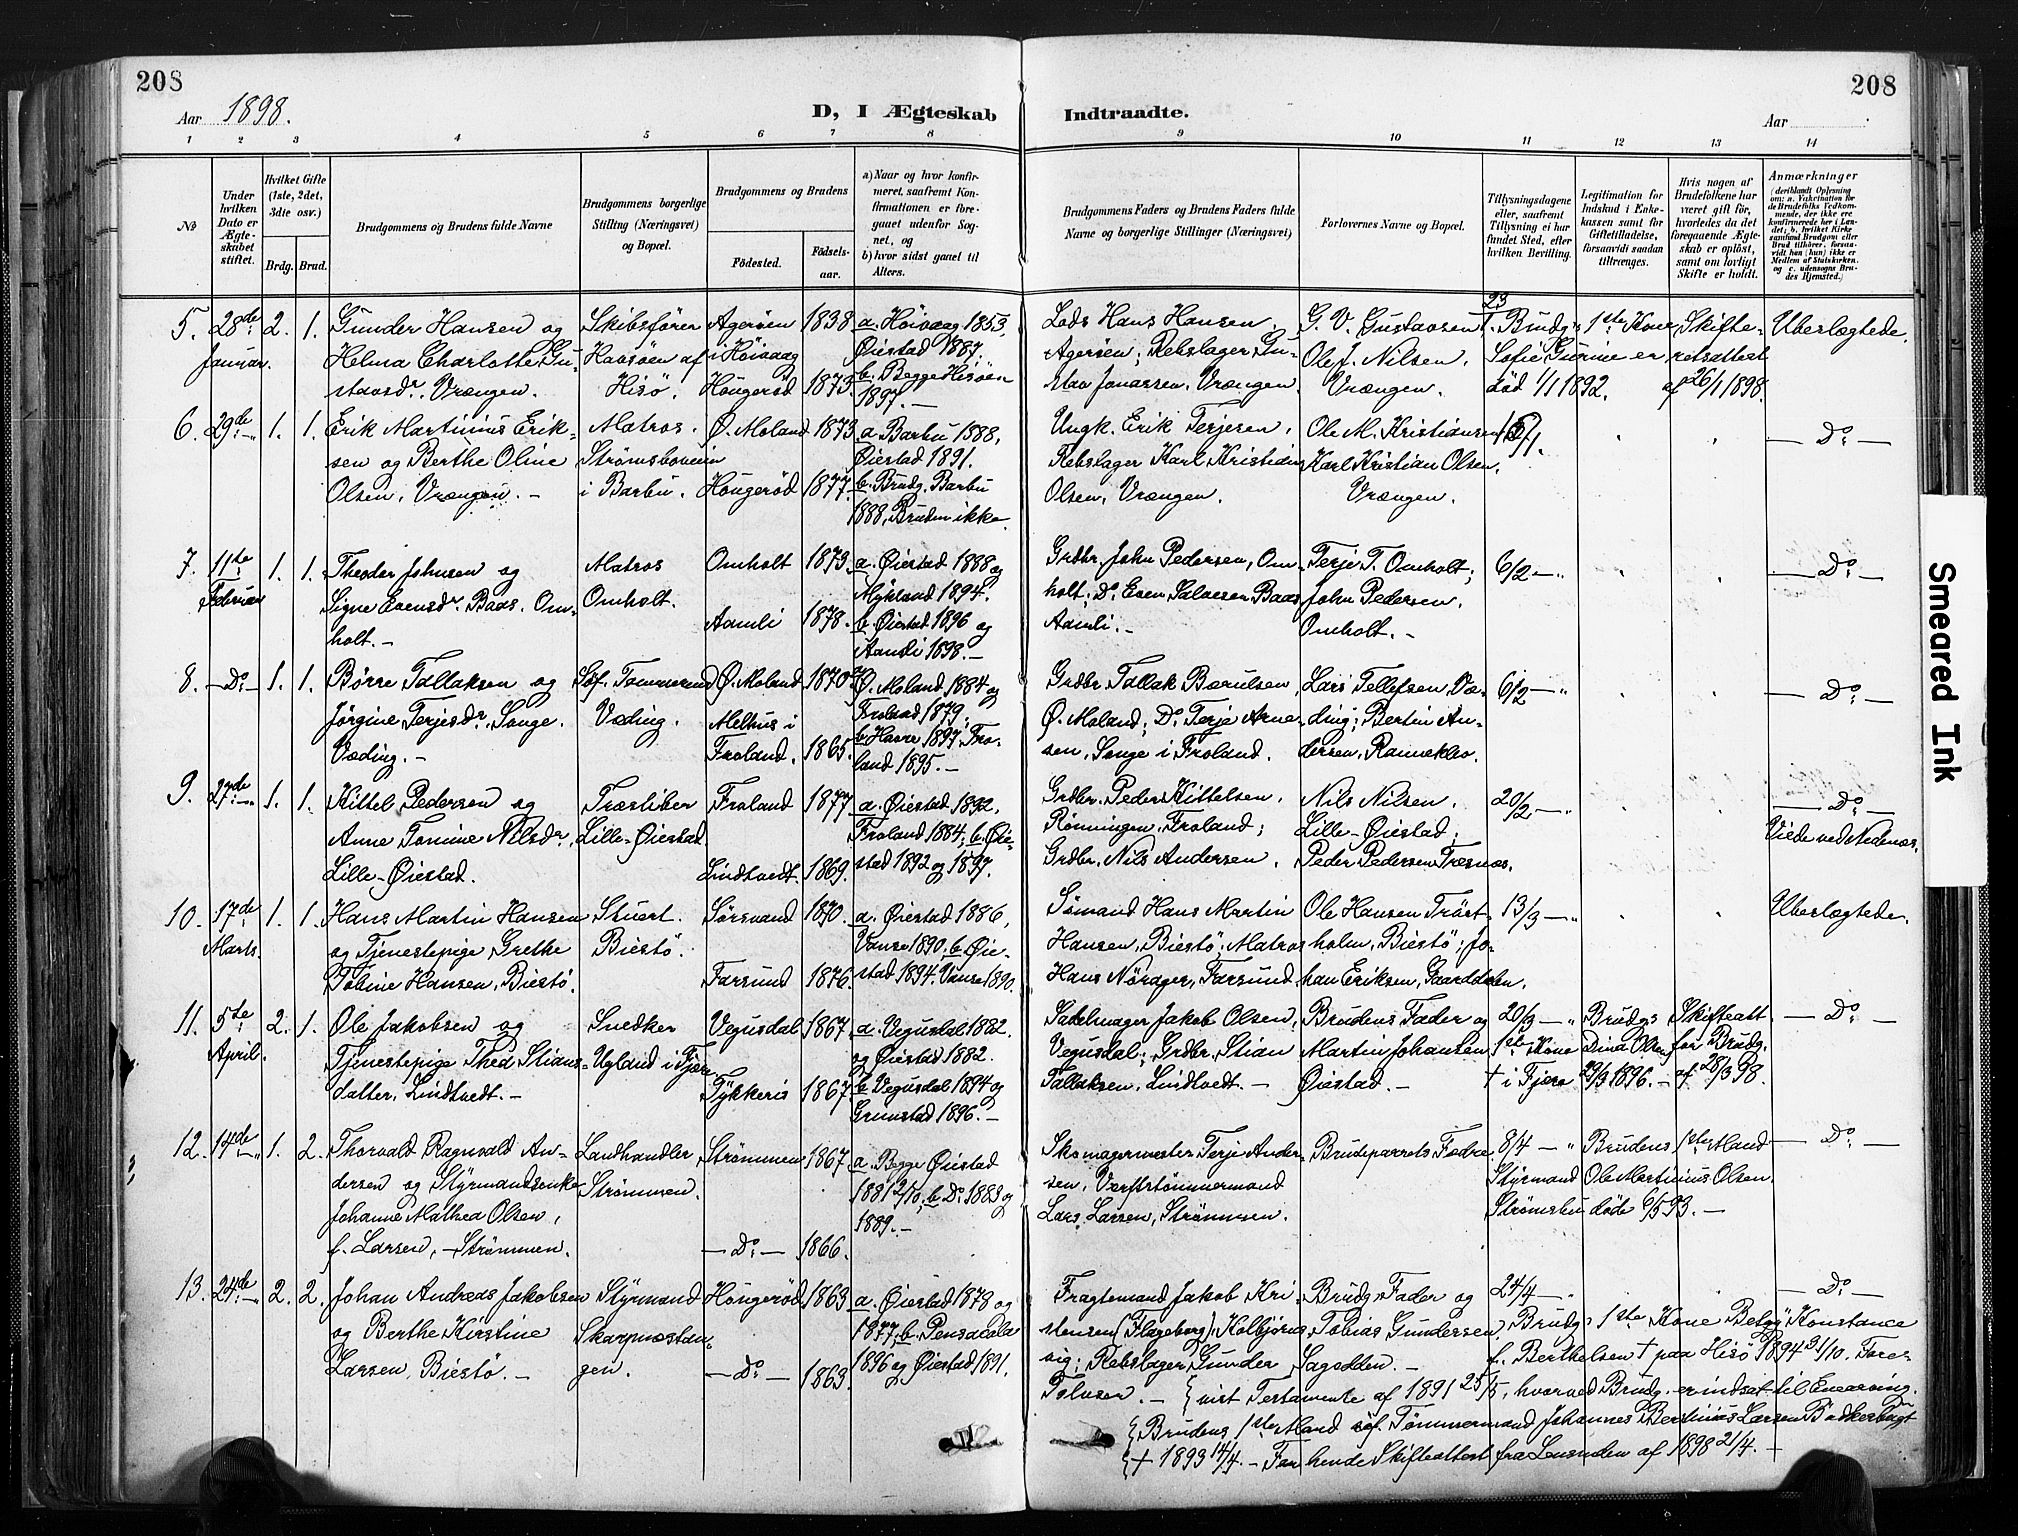 208
208
Aar 1898.
D, I Ægteskab Indtraadte.
Aar
1 2 3 4 5 6 7 8 9 10 11 12 13 14
№
Under hvilken Dato er Ægteskabet stiftet.
Hvilket Gifte (1ste, 2det, 3die osv.)
Brdg. Brud.
Brudgommens og Brudens fulde Navne
Brudgommens borgerlige Stilling (Næringsvei) og Bopæl.
Brudgommens og Brudens
Födested.
Födselsaar.
a) Naar og hvor konfirmeret, saafremt Konfirmationen er foregaaet udenfor Sognet, og
b) hvor sidst gaaet til Alters.
Brudgommens Faders og Brudens Faders fulde Navne og borgerlige Stillinger (Næringsvei)
Forlovernes Navne og Bopæl.
Tillysningsdagene eller, saafremt Tillysning ei har fundet Sted, efter hvilken Bevilling.
Legitimation for Indskud i Enkekassen samt for Giftetilladelse, forsaavidt saadan tiltrænges.
Hvis nogen af Brudefolkene har været gift för, hvorledes da det foregaaende Ægteskab er oplöst, samt om lovligt Skifte er holdt.
Anmærkninger (deriblandt Oplysning om: a. Vakcination for de Brudefolks Vedkommende, der ikke ere konfirmerede her i Landet; b. hvilket Kirkesamfund Brudgom eller Brud tilhörer, forsaavidt han (hun) ikke er Medlem af Statskirken, og c. udensogns Brudes Hjemsted.)
5. 28de Januar. 2. 1.
Gunder Hansen og
Helma Charlotte Gu-
stavsdr. Vrængen.
Skibsfører
Havsøen af
Hisö.
Agerøen
i Höivaag
Hougeröd
1838
1873.
a. Höivaag 1853,
Øiestad 1887.
b. Begge Hisøen
1897. —
Lods Hans Hansen,
Agerøen; Rebslager Gu-
stav Jonassen, Vrængen.
G. V. Gustavsen,
Ole J. Nilsen,
Vrængen.
23/1. Brudgs 1ste Kone
Sofie Gurine er
död 1/1 1892.
Skifte-
retsattest
af 26/1 1898.
Uberlægtede.
6. 29de 1. 1.
Erik Martinius Erik-
sen og Berthe Oline
Olsen, Vrængen. —
Matros.
Strømsboveien
i Barbu.
Ø. Moland
Hougeröd
1873
1877.
a. Barbu 1888,
Øiestad 1891.
b. Brudg. Barbu
1888, Bruden ikke.
Ungk. Erik Terjesen,
Rebslager Karl Kristian
Olsen, Vrængen.
Ole M. Kristiansen,
Karl Kristian Olsen,
Vrængen.
— Do. —
7. 11te Februar 1. 1.
Theodor Johnsen og
Signe Evensdr. Baas. Om-
holt. —
Matros
Omholt.
Omholt
Aamli
1873.
1878.
a. Øiestad 1888 og
Mykland 1894.
b. Øiestad 1896 og
Aamli 1898. —
Grdbr. John Pedersen, Om-
holt; Do. Even Salvesen Baas
Aamli. —
Terje T. Omholt;
John Pedersen,
Omholt. —
6/2 —
— Do. —
8. — Do. — 1. 1.
Børre Tallaksen og
Jörgine Terjesdr. Songe.
Væding. —
Søf. Tømmermand
Væding.
Ø. Moland
Melhus i
Froland.
1870
1865.
a. Ø. Moland 1884 og
Froland 1879;
b. Havre 1897, Fro-
land 1895. —
Grdbr. Tallak Bærulsen,
Ø. Moland; Do. Terje Arne-
sen, Songe i Froland.
Lars Tellefsen, Væ-
ding; Bertin An-
dersen, Rannekleo.
6/2 —
— Do. —
9. 27de 1. 1.
Kittel Pedersen og
Anne Tomine Nilsdr.,
Lille-Øiestad.
Træsliber
Lille-Øiestad.
Froland
Lindtvedt.
1877
1869.
a. Øiestad 1892.
Froland 1884; b. Øie-
stad 1892 og 1897.
Grdbr. Peder Kittelsen,
Rönningen, Froland;
Grdbr. Nils Andersen,
Nils Nilsen,
Lille-Øiestad;
Peder Pedersen Træsnæs.
20/2 —
— Do. —
Viede ved Nedenæs.
10. 17de Marts. 1. 1.
Hans Martin Hansen
og Tjenestepige Grethe
Tobine Hansen, Biestö.
Stuert.
Biestö.
Sörsvand
Farsund
1870.
1876.
a. Øiestad 1886,
Vanse 1890. b. Øie-
stad 1894. Vanse 1890.
Sömand Hans Martin
Hansen, Biestö; Matros
Hans Nörager, Farsund
Ole Hansen Tröst-
holm, Biestö; Jo-
han Eriksen, Gaarddalen.
13/3 —
Uberlægtede.
11. 5te April. 2. 1.
Ole Jakobsen og
Tjenestepige Thed Stians-
datter, Lindtvedt. —
Snedker
Ugland i Fjære.
Vegusdal
Tykkeris
1867.
1867
a. Vegusdal 1882.
og Øiestad 1882.
b. Vegusdal 1894 og
Grimstad 1896. —
Sadelmager Jakob Olsen,
Vegusdal; Grdbr. Stian
Tallaksen, Lindtvedt. —
Brudens Fader og
Martin Johansen
Øiestad. —
20/3 — Brudgs
1ste Kone Dina Olsen
† i Fjære 29/3 1896. —
Skifteatt.
for Brudg.
af 28/3 98.
— Do. —
12. 14de 1. 2.
Thorvald Ragnvald An-
dersen og Styrmandsenke
Johanne Mathea Olsen,
f. Larsen, — Strömmen.
Landhandler
Strömmen.
Strömmen
— Do. —
1867
1866.
a. Begge Øiestad
1881 2/10; b. Do. 1883 og
1889. —
Skomagermester Terje Ander-
sen, Værftstömmermand
Lars Larsen, Strömmen.
Brudeparrets Fædre
8/4 — Brudens 1ste Mand
Styrmand Ole Martinius Olsen.
Strömsbu döde 6/5 93. —
— Do. —
13. 24de 2. 2.
Johan Andreas Jakobsen
og Berthe Kirstine
Larsen, Biestö. —
Styrmand
Skarpnæstan-
gen.
Hougeröd
— Do. —
1863
1863.
a. Øiestad 1878 og
1877; b. Pensacola
1896 og Øiestad 1891.
Fragtemand Jakob Kri-
stensen (Flageborg), Kolbjörns-
vig; Rebslager Gunder
Tolvsen. —
Brudg. Fader og
Tobias Gundersen,
Sagodden. —
24/4 —
— Do. —
Brudgs 1ste Kone Betzy Konstance
f. Berthelsen † paa Hisö 1894 31/10. Fore-
vist Testamente af 1891 25/5, hvorved Brudg. er indsat til Enearving.
Brudens 1ste Mand söf. Tömmermand Johannes Bertinius Larsen Bödkerbugt
† 1893 14/4. — Foreliggende Skifteattest fra Lensmden af 1898 21/4. —
Smeared Ink